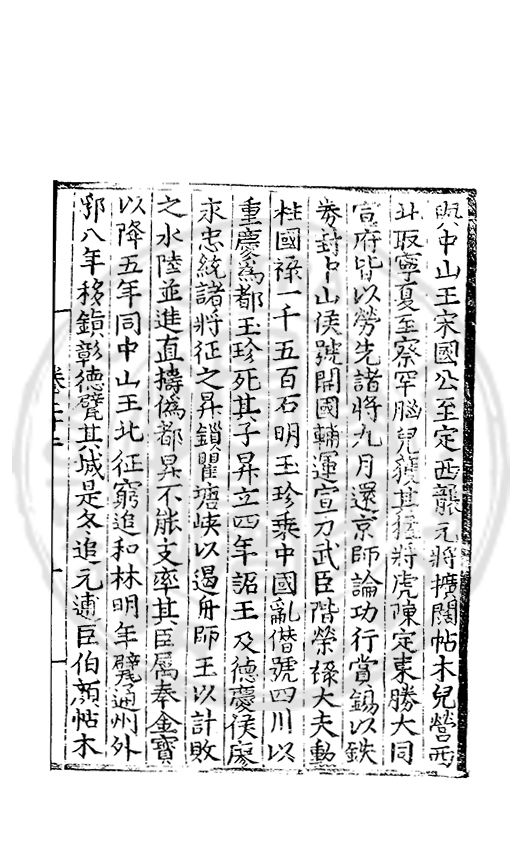 與中山王宋國公至定西襲元將擴闊帖木兒營西
北取寧夏至察罕腦兒獲其猛將虎陳定東勝大同
宣府皆以勞先諸將九月還京師論功行賞錫以鉄
券封中山侯號開國輔運宣力武臣階榮祿大夫勳
柱國祿一千五百石明玉珍乘中國亂僭號四川以
重慶為都玉珍死其子昇立四年詔王及德慶侯廖
永忠統諸將征之昇鎖瞿塘峽以遏舟師王以計敗
之水陸並進直擣偽都昇不能支率其臣屬奉金寶
以降五年同中山王北征窮追和林明年甓通州外
郛八年移鎮彰德甓其城是冬追元逋臣伯顏帖木